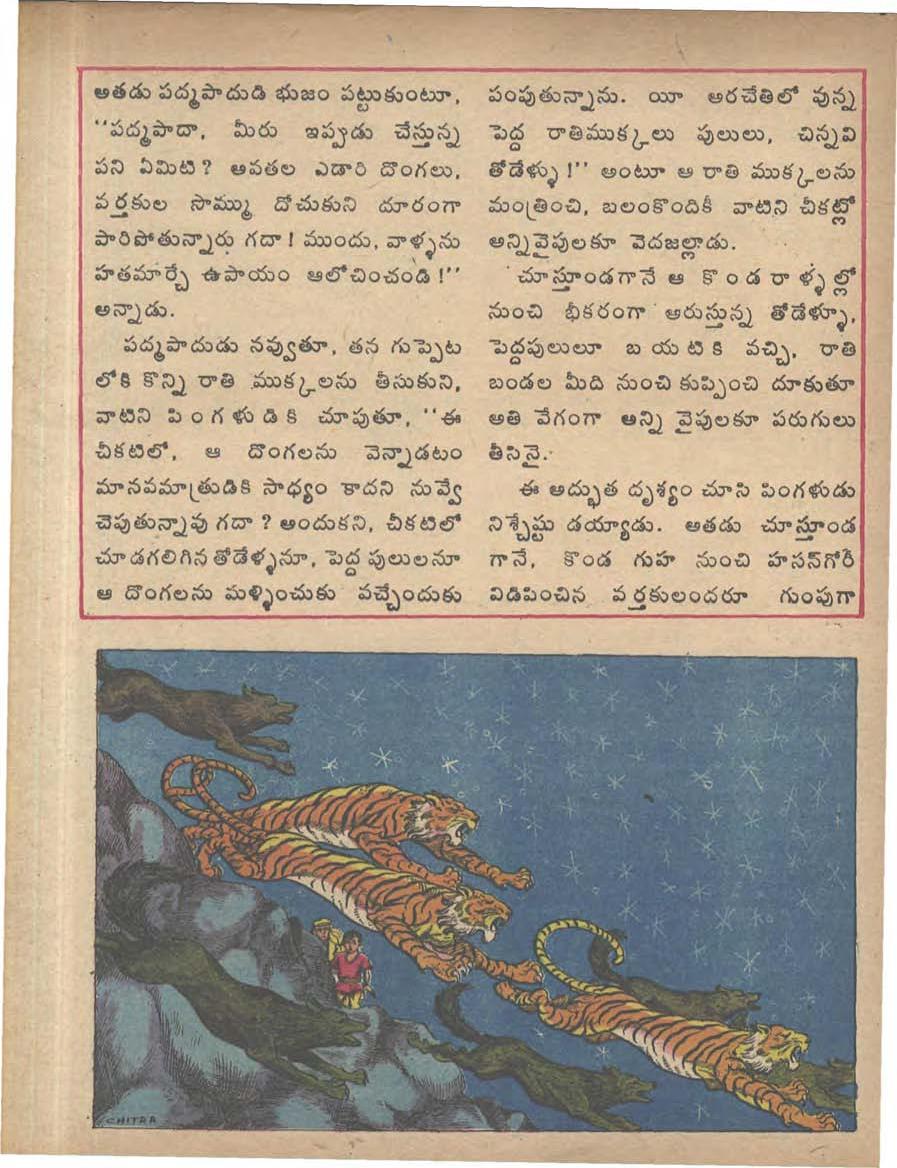 అతడు పద్మపాదుడి భుజం పట్టుకుంటూ,
"పద్మపాదా, మీరు ఇప్పుడు చేస్తున్న
పని ఏమిటి? అవతల ఎడారి దొంగలు,
వర్తకుల సొమ్ము దోచుకుని దూరంగా
పారిపోతున్నారు గదా! ముందు, వాళ్ళను
హతమార్చే ఉపాయం ఆలోచించండి!"
అన్నాడు.
పద్మపాదుడు నవ్వుతూ, తన గుప్పెట
లోకి కొన్ని రాతి ముక్కలను తీసుకుని,
వాటిని పింగళుడికి చూపుతూ, "ఈ
చీకటిలో, ఆ దొంగలను వెన్నాడటం
మానవమాత్రుడికి సాధ్యం కాదని నువ్వే
చెపుతున్నావు గదా? అందుకని, చీకటిలో
చూడగలిగిన తోడేళ్ళనూ, పెద్దపులులనూ
ఆ దొంగలను మళ్ళించుకు వచ్చేందుకు
పంపుతున్నాను. యీ అరచేతిలో వున్న
పెద్ద రాతిముక్కలు పులులు, చిన్నవి
తోడేళ్ళు!" అంటూ ఆ రాతి ముక్కలను
మంత్రించి, బలంకొందికీ వాటిని చీకట్లో
అన్నివైపులకూ వెదజల్లాడు.
చూస్తూండగానే ఆ కొండరాళ్ళల్లో
నుంచి భీకరంగా అరుస్తున్న తోడేళ్ళూ,
పెద్దపులులూ బయటికి వచ్చి, రాతి
బండల మీది నుంచి కుప్పించి దూకుతూ
అతి వేగంగా అన్ని వైపులకూ పరుగులు
తీసినై.
ఈ అద్భుత దృశ్యం చూసి పింగళుడు
నిశ్చేష్టు డయ్యాడు. అతడు చూస్తూండ
గానే, కొండ గుహ నుంచి హసన్‌గోరీ
విడిపించిన వర్తకులందరూ గుంపుగా
CHITRA